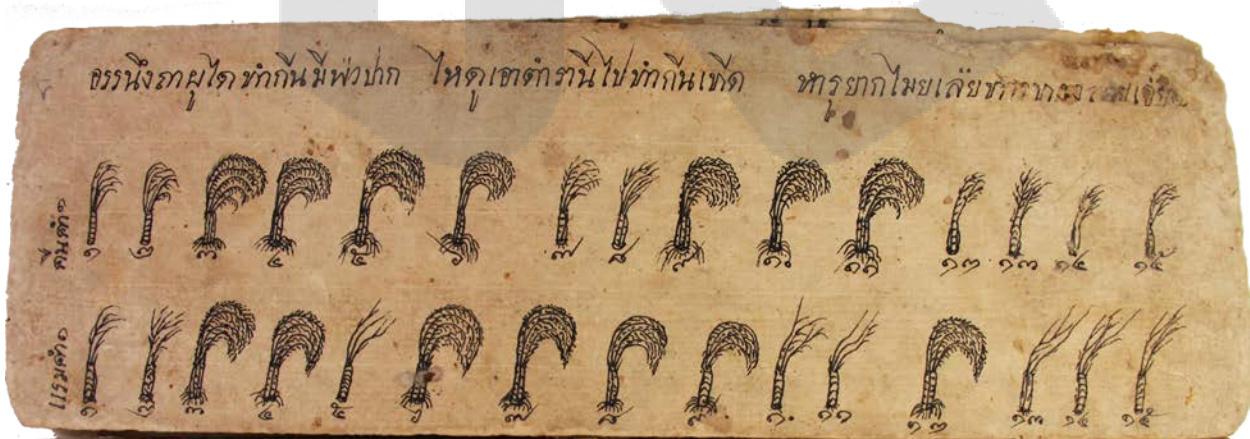 อรรนึงถาผู่ใดทำกีนมีพ่วปาก ไหดูเอาตำรานีไปทำกีนเทีด หารูยากไมยเลีย
คืนคำ๑ ๑ ๒ ๓ ๔ ๕ ๖ ๗ ๘ ๙ ๑๐ ๑๑ ๑๓ ๑๓ ๑๔ ๑๕
แรมคำ๑ ๑ ๒ ๓ ๔ ๕ ๖ ๗ ๘ ๙ ๑๐ ๑๑ ๑๓ ๑๓ ๑๔ ๑๕